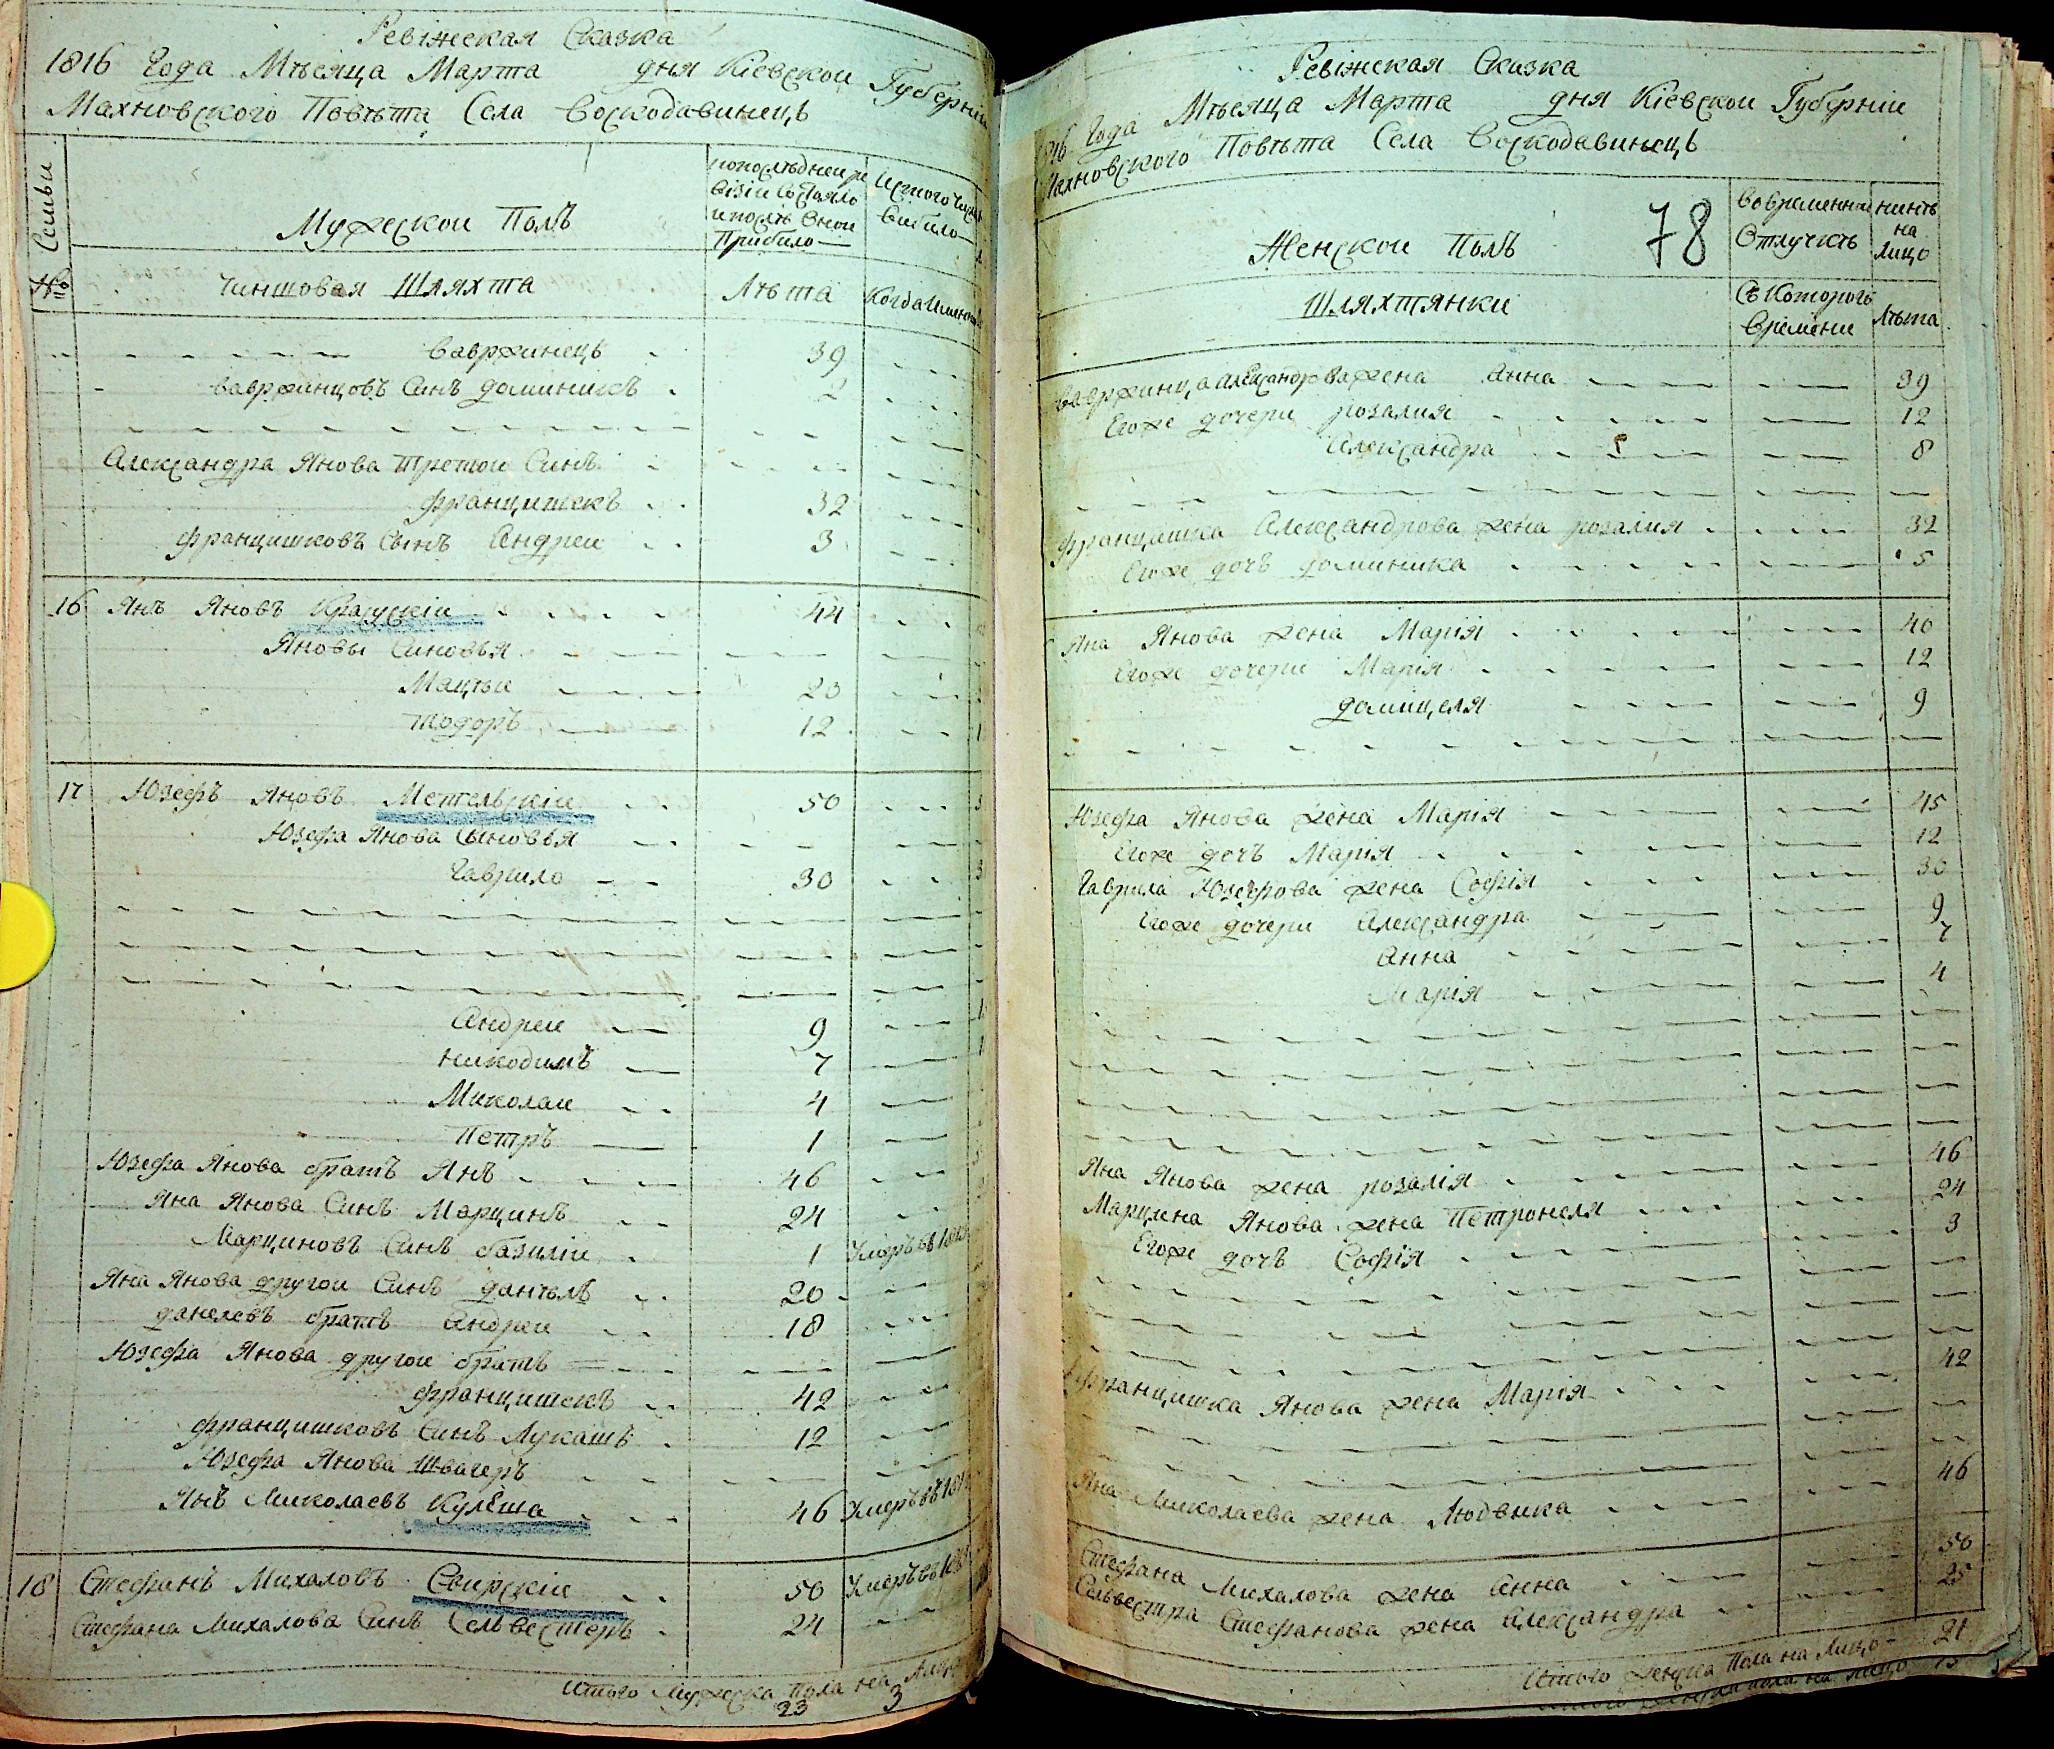 Ревіжская Сказка
1816 Года Мѣсяца Марта дня Кіевскои Губерніи
Махновского Повѣта Села Воскодавинецъ
№ Семьи
Мужескои Полъ
попослѣднеи ре
візіи состояло
и послѣ Онои
Прибило
Истого числа
вибило
Чиншовая Шляхта
Лѣта
Когда Имянно
Вавржинецъ 39
Вавржинцовъ Синъ Доминикъ 2
Александра Янова Третои Синъ
Францишекъ 32
Францишковъ Сынъ Андреи 3
16 Янъ Яновъ Краускіи 44
Яновы Синовья
Мацѣи 20
Тодоръ 12
17 Юзефъ Яновъ Метельскіи 50
Юзефа Янова Сыновья
Гаврило 30
Андреи 9
Никодимъ 7
Миколаи 4
Петръ 1
Юзефа Янова братъ Янъ 46
Яна Янова Синъ Марцинъ 24
Марциновъ Синъ Базиліи 1 Умеръ въ
Яна Янова другои Синъ Данѣлъ 20
Данелевъ братъ Андреи 18
Юзефа Янова другои братъ
Францишекъ 42
Францишковъ Синъ Лукашъ 12
Юзефа Янова Швагеръ
Янъ Миколаевъ Кулеша 46 Умеръ въ
18 Стефанъ Михаловъ Свирскіи 50 Умеръ въ
Стефана Михалова Синъ Сельвестеръ 24
Итого Мужеска Пола на Лицо
23 3
Ревіжская Сказка
1816 Года Мѣсяца Марта дня Кіевскои Губерніи
Махновского Повѣта Села Воскодавинецъ
Женскои Полъ
78
Вовременнои
Отлучкѣ
нинѣ
на
Лицо
Шляхтянки
Съ Которого
Времени
Лѣта
Вавржинца Александрова жена Анна 39
Егоже дочери Розалия 12
Александра 8
Францишка Александрова жена Розалия 32
Егоже дочъ Доминика 5
Яна Янова жена Марія 40
Егоже дочери Марія 12
Доміцеля 9
Юзефа Янова жена Марія 45
Егоже дочъ Марія 12
Гаврила Юзефова жена Софія 30
Егоже дочери Александра 9
Анна 7
Марія 4
Яна Янова жена Розалія 46
Марцина Янова жена Петронеля 24
Егоже дочъ Софія 3
Францишка Янова жена Марія 42
Яна Миколаева жена Людвика 46
Стефана Михалова жена Анна 50
Сельвестра Стефанова жена Александра 25
Итого женска Пола на Лицо 21